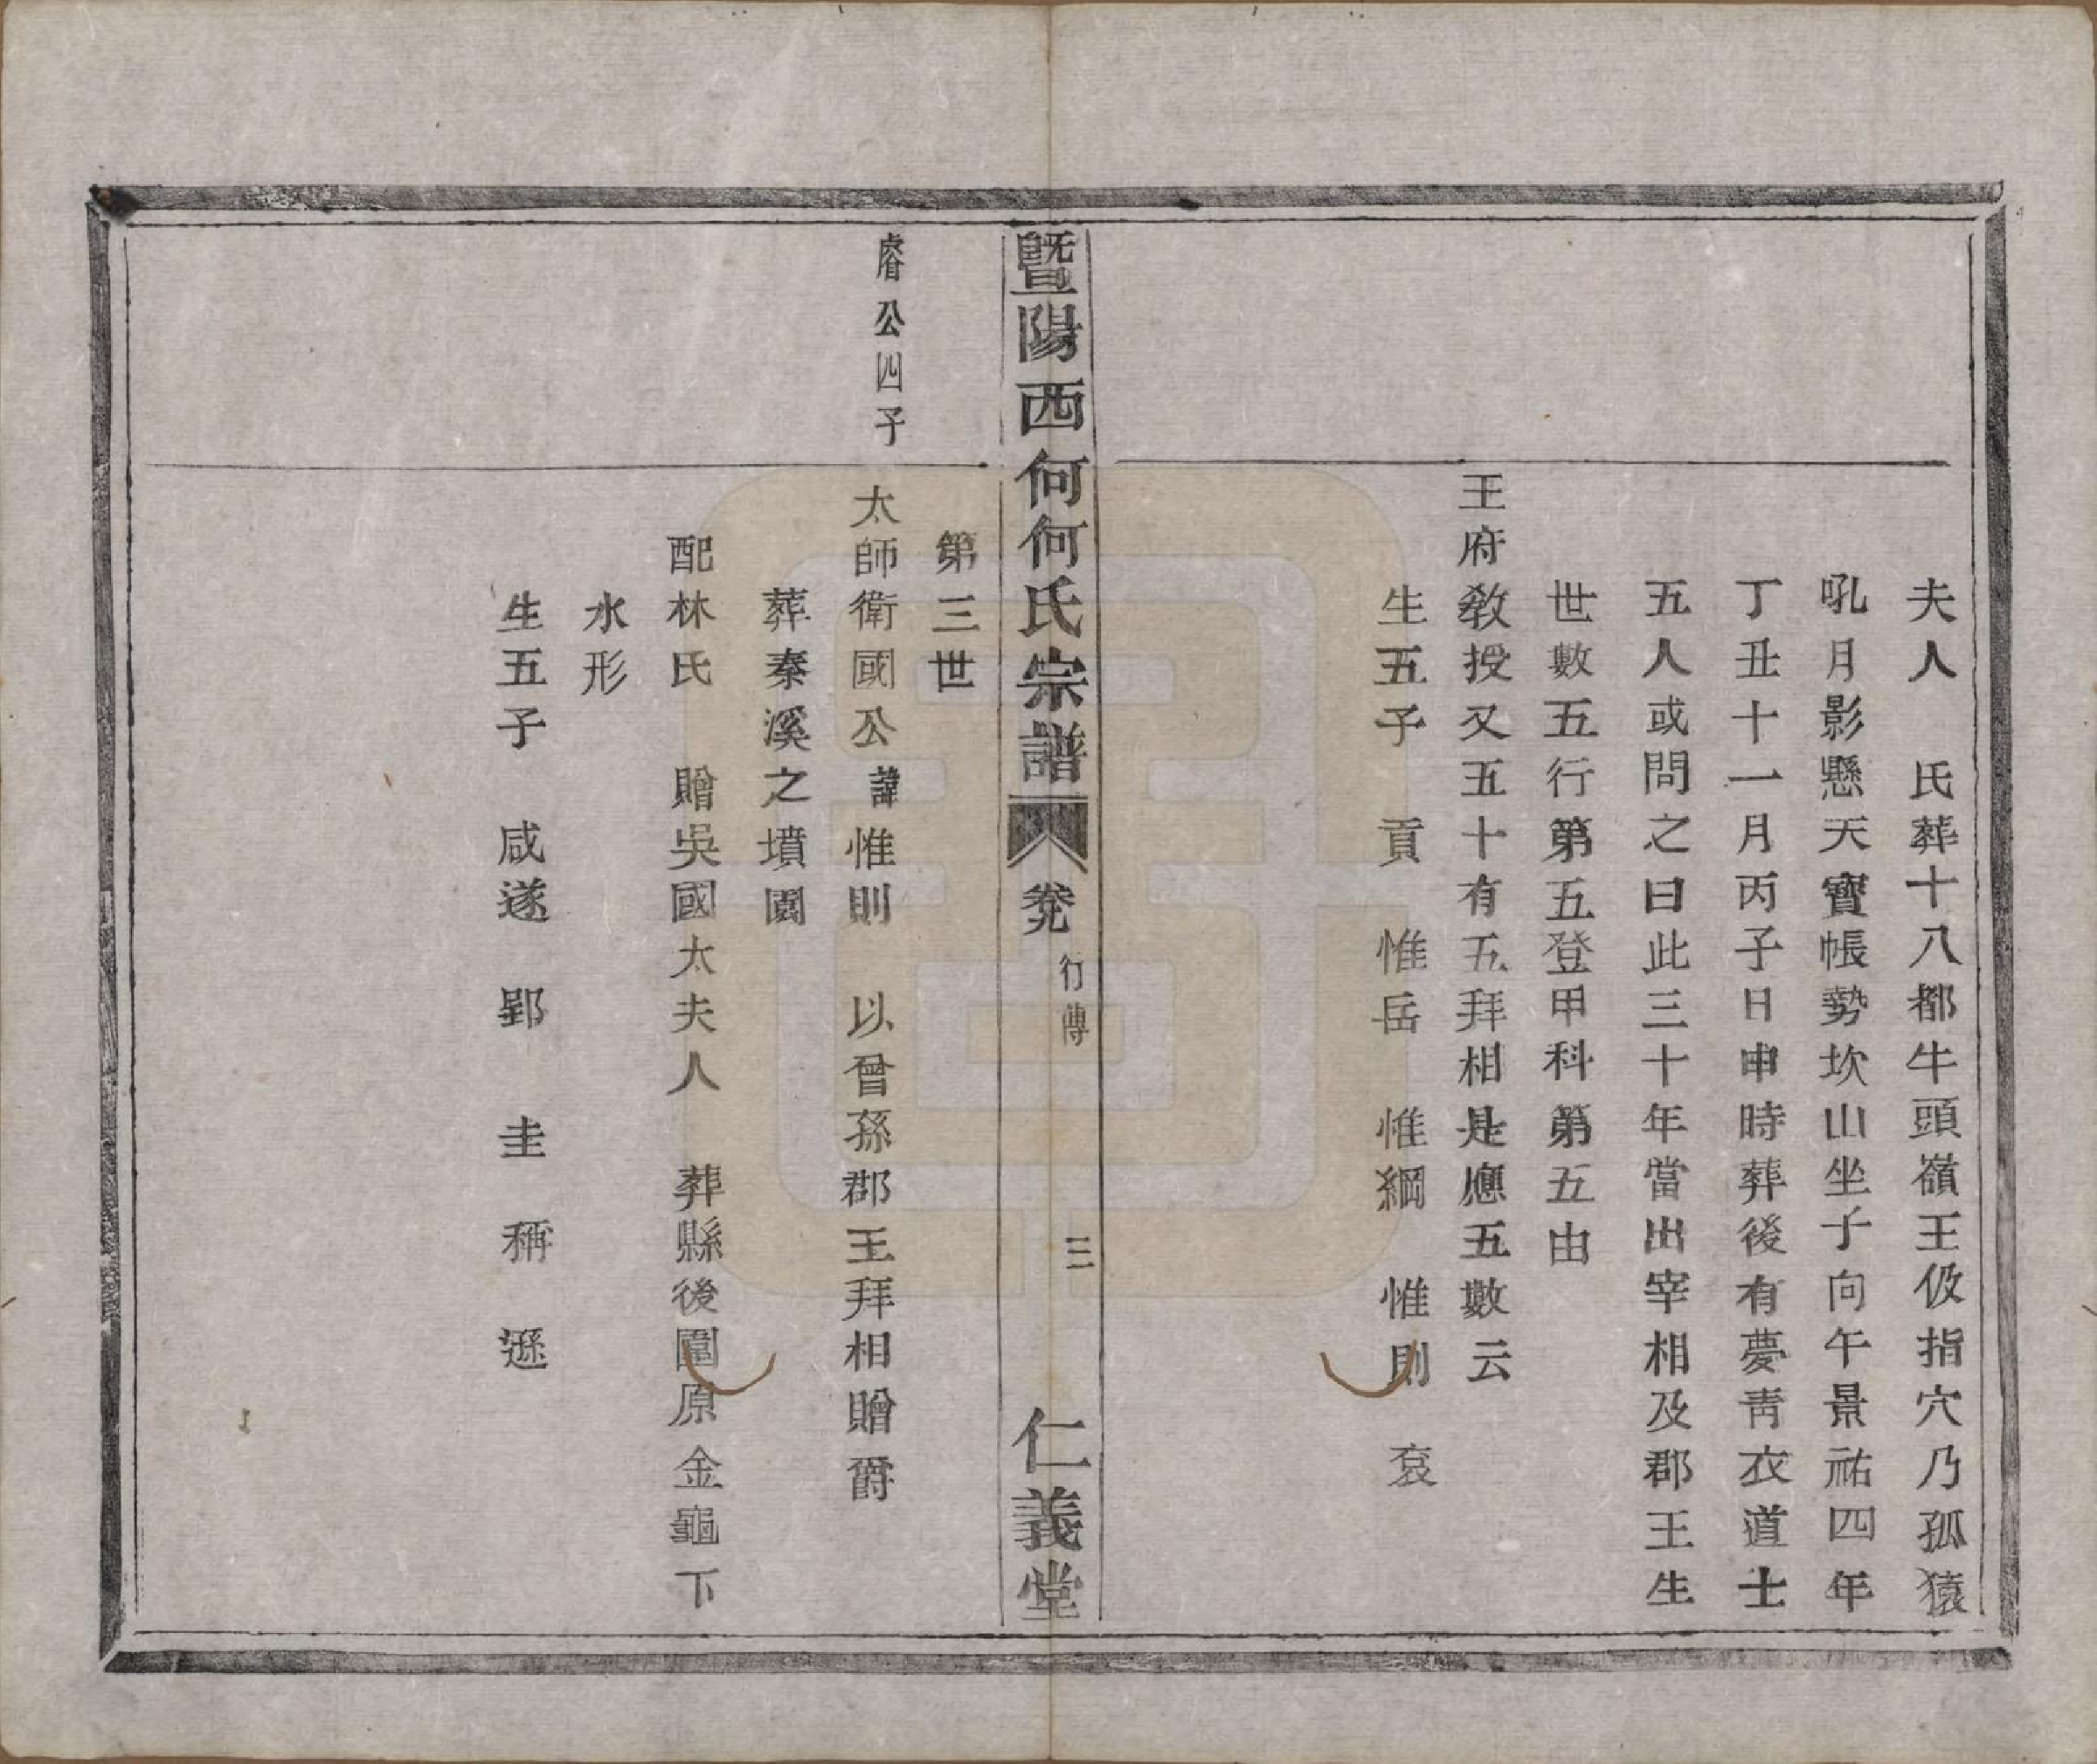 夫人　氏葬十八都牛頭嶺王伋指穴乃孤猿
吼月影懸天寶帳勢坎山坐子向午景祐四年
丁丑十一月丙子日申時葬後有夢靑衣道士
五人或問之曰此三十年當出宰相及郡王生
世數五行第五登甲科第五由
王府敎授又五十有五拜相是應五數云
生五子　貢　惟岳　惟綱　惟則　袞
暨陽西何何氏宗譜　卷　行傳　三　仁義堂
第三世
睿公四子
太師衛國公諱惟則　以曾孫郡王拜相贈爵
葬秦溪之墳園
配林氏　贈吳國太夫人　葬縣後圍原金龜下
水形
生五子　咸遂　郢　圭　稱　遜